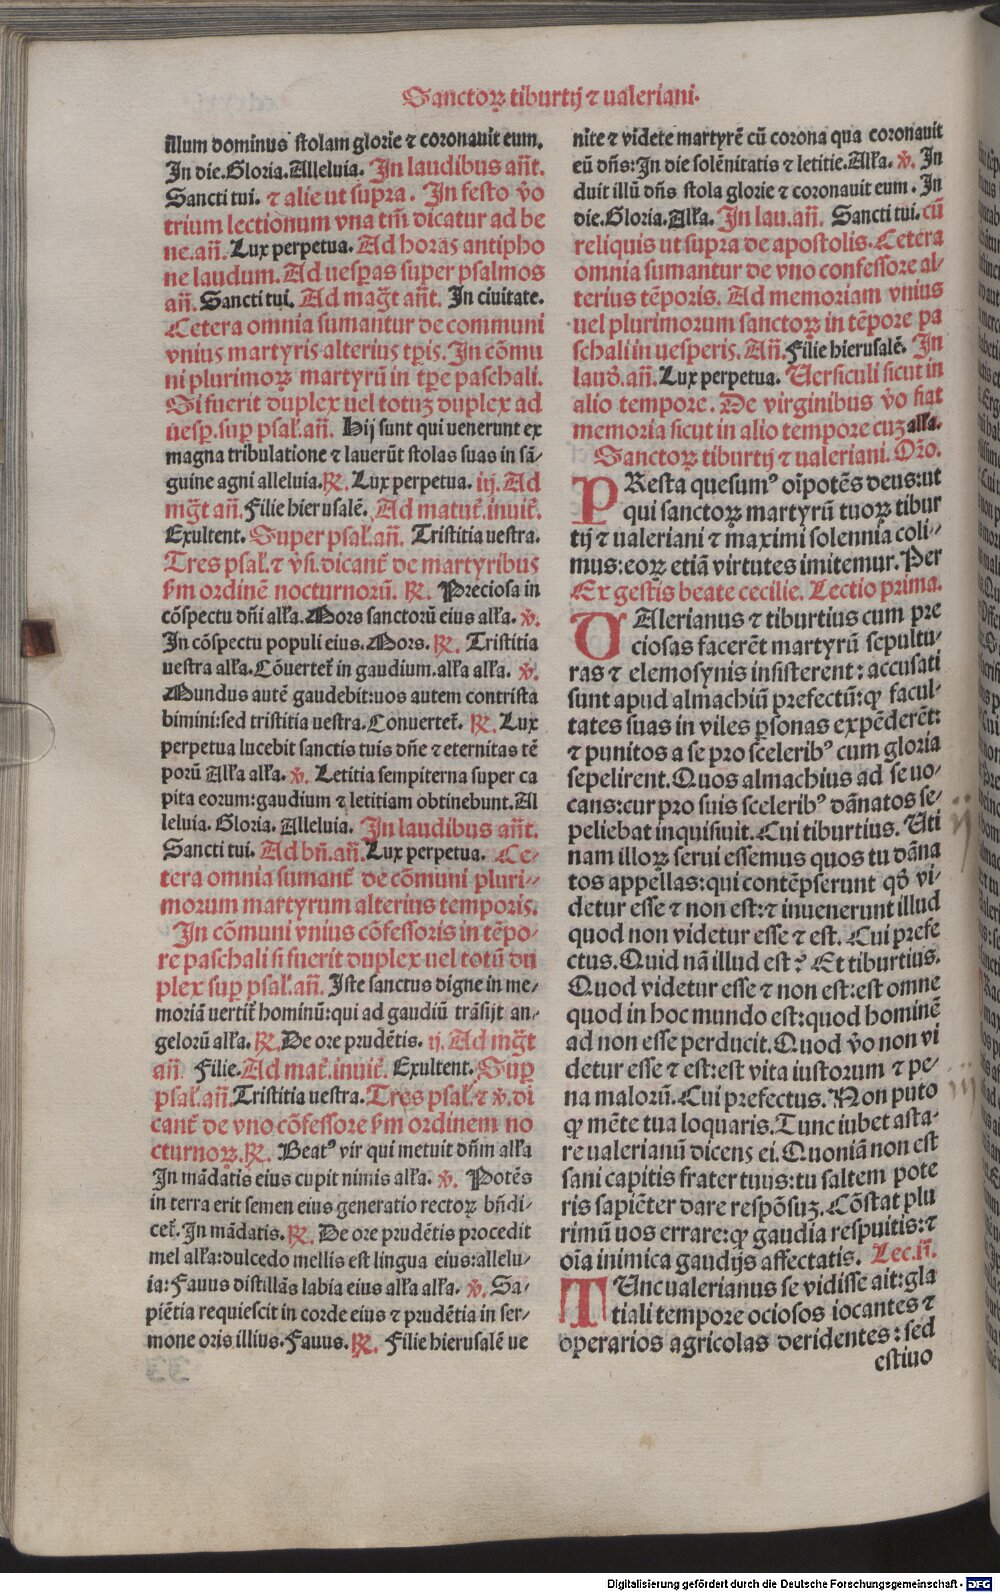 Sanctoꝝ tiburtij ⁊ ualeriani.
illum dominus stolam glorie ⁊ coronauit eum.
In die. Gloria. Alleluia. In laudibus añt.
Sancti tui. ⁊ alie ut supra. In festo v̾o
trium lectionum vna tm̄ dicatur ad be
ne. añ. Lux perpetua. Ad horas antipho
ne laudum. Ad uesp̱as super psalmos
añ. Sancti tui. Ad mag̃t añt. In ciuitate.
Cetera omnia sumantur de communi
vnius martyris alterius tp̄is. In cõmu
ni plurimoꝝ martyrũ in tp̄e paschali.
Si fuerit duplex uel totuꝫ duplex ad
uesp̱. sup̱ psał. añ. Hij sunt qui uenerunt ex
magna tribulatione ⁊ lauerũt stolas suas in sã⸗
guine agni alleluia. ℟. Lux perpetua. iij. Ad
mg̃t añ. Filie hierusalẽ. Ad matuť. inuiť.
Exultent. Super psał. añ. Tristitia uestra.
Tres psał. ⁊ v̾si. dicant̃ de martyribus
ẜm ordinẽ nocturnorũ. ℟. Preciosa in
cõspectu dñi alła. Mors sanctorũ eius alła. ℣.
In cõspectu populi eius. Mors. ℟. Tristitia
uestra alła. Cõuerteť in gaudium. alła alła. ℣.
Mundus autẽ gaudebit: uos autem contrista
bimini: sed tristitia uestra. Conuerteť. ℟. Lux
perpetua lucebit sanctis tuis dñe ⁊ eternitas tẽ
porũ Alła alła. ℣. Letitia sempiterna super ca
pita eorum: gaudium ⁊ letitiam obtinebunt. Al
leluia. Gloria. Alleluia. In laudibus añt.
Sancti tui. Ad bñ. añ. Lux perpetua. Ce⸗
tera omnia sumant̃ de cõmuni pluri⸗
morum martyrum alterius temporis.
In cõmuni vnius cõfessoris in tẽpo⸗
re paschali si fuerit duplex uel totũ du
plex sup̱ psał. añ. Iste sanctus digne in me⸗
moriã uertiť hominũ: qui ad gaudiũ trãsijt an⸗
gelorũ alła. ℟. De ore prudẽtis. ij. Ad mg̃t
añ. Filie. Ad mať. inuiť. Exultent. Sup̱
psał. añ. Tristitia uestra. Tres psał. ⁊ ℣. di
cant̃ de vno cõfessore ẜm ordinem no
cturnoꝝ. ℟. Beatꝰ vir qui metuit dñm alła
In mãdatis eius cupit nimis alła. ℣. Potẽs
in terra erit semen eius generatio rectoꝝ bñdi⸗
ceť. In mãdatis. ℟. De ore prudẽtis procedit
mel alła: dulcedo mellis est lingua eius: allelu⸗
ia: Fauus distillãs labia eius alła alła. ℣. Sa⸗
piẽtia requiescit in corde eius ⁊ prudẽtia in ser⸗
mone oris illius. Fauus. ℟. Filie hierusalẽ ve
nite ⁊ videte martyrẽ cũ corona qua coronauit
eũ dñs: In die solẽnitatis ⁊ letitie. Alła. ℣. In
duit illũ dñs stola glorie ⁊ coronauit eum. In
die. Gloria. Alła. In lau. añ. Sancti tui. cũ
reliquis ut supra de apostolis. Cetera
omnia sumantur de vno confessore al⸗
terius tẽporis. Ad memoriam vnius
uel plurimorum sanctoꝝ in tẽpore pa
schali in uesperis. Añ. Filie hierusalẽ. In
laud. añ. Lux perpetua. Uersiculi sicut in
alio tempore. De virginibus v̾o fiat
memoria sicut in alio tempore cuꝫ alła.
Sanctoꝝ tiburtij ⁊ ualeriani. Or̃o.
PResta quesumꝰ oĩpotẽs deus: ut
qui sanctoꝝ martyrũ tuoꝝ tibur
tij ⁊ ualeriani ⁊ maximi solennia coli⸗
mus: eoꝝ etiã virtutes imitemur. Per
Ex gestis beate cecilie. Lectio prima.
UAlerianus ⁊ tiburtius cum pre
ciosas facerẽt martyrũ sepultu⸗
ras ⁊ elemosynis insisterent: accusati
sunt apud almachiũ prefectũ: ꝙ facul⸗
tates suas in viles p̱sonas expẽderẽt:
⁊ punitos a se pro sceleribꝰ cum gloria
sepelirent. Quos almachius ad se uo⸗
cans: cur pro suis sceleribꝰ dãnatos se⸗
peliebat inquisiuit. Cui tiburtius. Uti
nam illoꝝ serui essemus quos tu dãna
tos appellas: qui contẽpserunt qđ vi⸗
detur esse ⁊ non est: ⁊ inuenerunt illud
quod non videtur esse ⁊ est. Cui prefe
ctus. Quid nã illud est? Et tiburtius.
Quod videtur esse ⁊ non est: est omne
quod in hoc mundo est: quod hominẽ
ad non esse perducit. Quod v̾o non vi
detur esse ⁊ est: est vita iustorum ⁊ pe⸗
na malorũ. Cui prefectus. Non puto
ꝙ mẽte tua loquaris. Tunc iubet asta⸗
re ualerianũ dicens ei. Quoniã non est
sani capitis frater tuus: tu saltem pote
ris sapiẽter dare respõsuꝫ. Cõstat plu
rimũ uos errare: ꝙ gaudia respuitis: ⁊
oĩa inimica gaudijs affectatis. Lec. ij.
TUnc ualerianus se vidisse ait: gla
tiali tempore ociosos iocantes ⁊
operarios agricolas deridentes: sed
estiuo
Digitalisierung gefördert durch die Deutsche Forschungsgemeinschaft - DFG